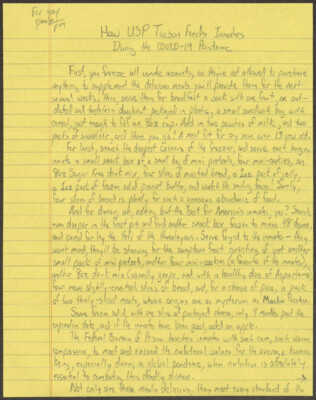 For my
pen pal
pm
How USP Tucson Feeds Inmates
During the COVID-19 Pandemic
First, you freeze all inmate accounts, so they're not allowed to purchase
anything to supplement the delicious meals you'll provide them for the next
several weeks. Then, serve them for breakfast a sack with one fruit, an out-
dated and tasteless doughnut packaged in plastic, a small sandwich bag with
cereal, just enough to fill an 8oz cup. Add in two counters of milk, and two
packs of sweetener, and there you go! A meal fit for any man over 18 years old.
For lunch, search the deepest corners of the freezer, and serve each hungry
inmate a small snack box of a small bag of mini pretzels, four mini-cookies, an
8oz sugar free drink mix, four slices of mustard bread, a 1oz pack of jelly,
a 1oz pack of frozen solid peanut butter, and watch the smiling faces. Surely,
four slices of bread is plenty for such a generous abundance of food.
And for dinner, oh, nothing but the best for America's inmates, you? Search
even deeper in the first pit and find another snack box, frozen to minus 48 degrees
and cared for by the Yetis of the Himalayas. Serve by to the inmates - they
won't mind, they'll be starving for the sumptuous treat consisting of yet another
small pack of mini pretzels, another four mini-cookies (a favorite of the inmates),
another 8oz drink mix (usually grape, and with a healthy dose of Aspartame),
four more slightly-crushed slices of bread, and, for a change of pace, a pack
of two thinly-sliced meats, whose origins are as mysterious as Machu Picchu.
Serve frozen solid, with one slice of processed cheese, only 4 months past the
expiration date, and if the inmates have been good, add an apple.
The Federal Bureau of Prisons nourishes inmates with such care, such sincere
compassion, to meet and exceed the nutritional values for the average human
being, especially during a global pandemic, when nutrition is absolutely
essential to combating this deadly disease.
Not only are these meals delicious, they meet every standard of the